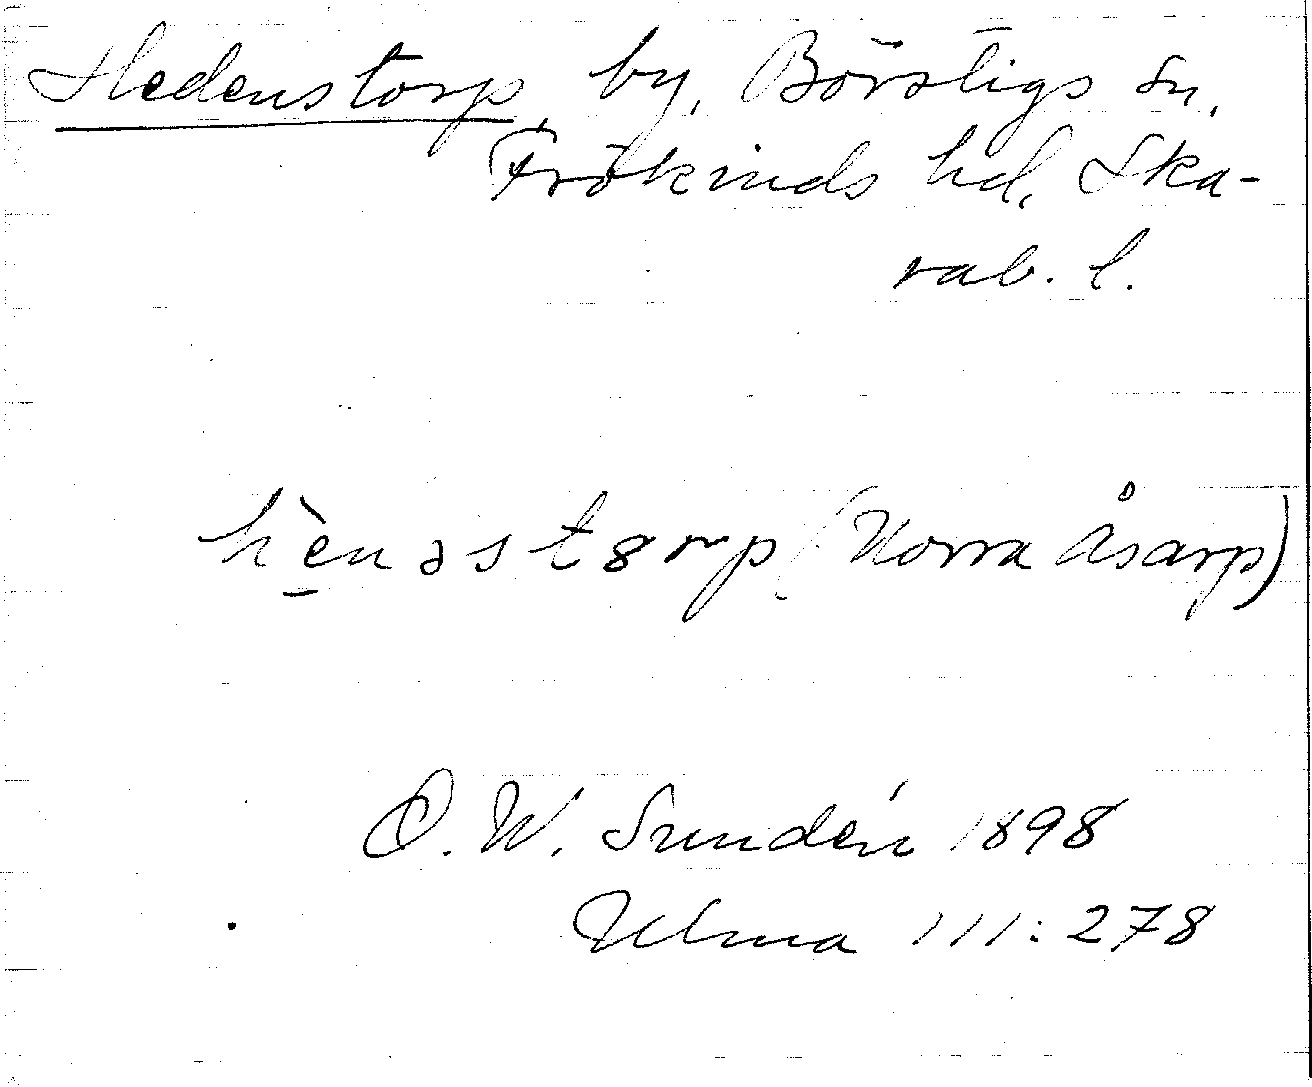 Hedenstorp, by, Börstigs sn,
Frökinds hd, Ska-
rab. l.
hènəstȣrp (Norra Åsarp)
D. W. Sundén 1898
Ulma 111:278